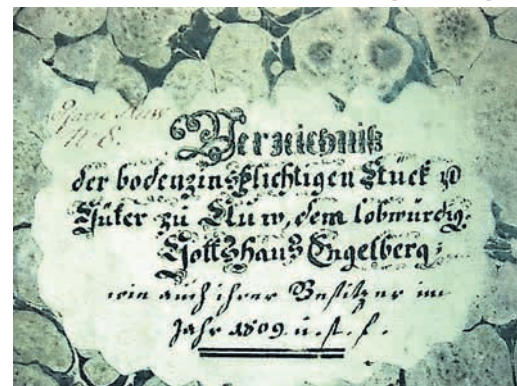 N. 8.
Verzeichniß
der bodenzinspflichtigen Stuck u
Güter zu Auw, dem lobwürdig.
Gottshaus Engelberg;
wie auch ihrer Besitzer im
Jahr 1809 u. s. f.